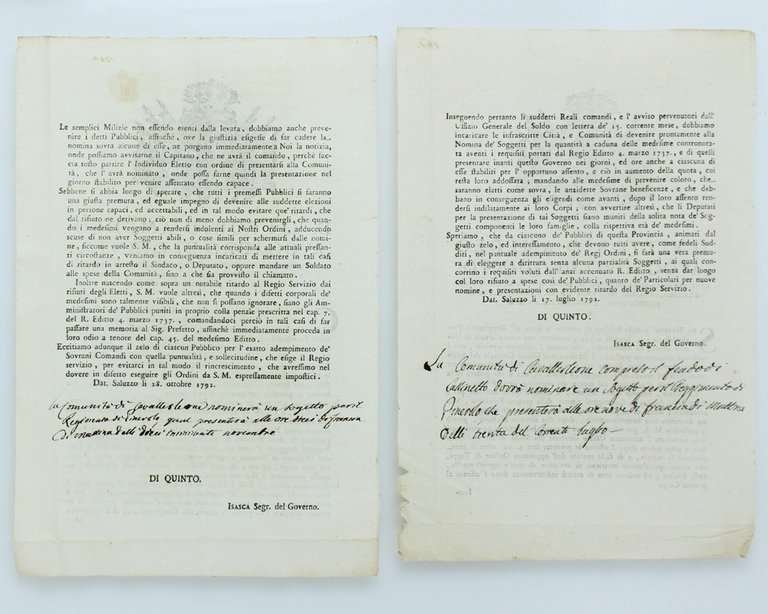 Le semplici Milizie non essendo esenti dalla levata, dobbiamo anche preve-
nire i detti Pubblici, affinchè, ove la giustizia esigesse di far cadere la
nomina sovra alcune di esse, ne porgano immediatamente a Noi la notizia,
onde possiamo avvisarne il Capitano, che ne avrà il comando, perchè fac-
cia tosto partire l'Individuo Eletto con ordine di presentarsi alla Comuni-
tà, che l'avrà nominato, onde possa farne quindi la presentazione nel
giorno stabilito per venire assentato essendo capace.
Sebbene si abbia luogo di sperare, che tutti i premessi Pubblici si faranno
una giusta premura, ed eguale impegno di devenire alle suddette elezioni
in persone capaci, ed accettabili, ed in tal modo evitare que' ritardi, che
dal rifiuto ne derivano; ciò non di meno dobbiamo prevenirgli, che quan-
do i medesimi vengano a rendersi indolenti ai Nostri Ordini, adducendo
scuse di non aver Soggetti abili, o cose simili per schermirsi dalle nomi-
ne, siccome vuole S. M., che la puntualità corrisponda alle attuali pressan-
ti circostanze, veniamo in conseguenza incaricati di mettere in tali casi
di ritardo in arresto il Sindaco, o Deputato, oppure mandare un Soldato
alle spese della Comunità, fino a che sia provvisto il chiamato.
Inoltre nascendo come sopra un notabile ritardo al Regio Servizio dai
rifiuti degli Eletti, S. M. vuole altresì, che quando i difetti corporali de'
medesimi sono talmente visibili, che non si possano ignorare, siano gli Am-
ministratori de' Pubblici puniti in proprio colla pena prescritta nel cap. 7.
del R. Editto 4. marzo 1737., comandandoci perciò in tali casi di far
passare una memoria al Sig. Prefetto, affinchè immediatamente proceda in
loro odio a tenore del cap. 45. del medesimo Editto.
Eccitiamo adunque il zelo di ciascun Pubblico per l'esatto adempimento de'
Sovrani Comandi con quella puntualità, e sollecitudine, che esige il Regio
servizio, per evitarci in tal modo il rincrescimento, che avressimo nel
dovere in difetto eseguire gli Ordini da S. M. espressamente impostici.
Dat. Saluzzo li 28. ottobre 1792.
La Comunità di Cavallerleone nominerà un sogetto per il
Regimento di Pinerolo qual presenterà alle ore dieci di Francia
di mattina delli dieci imminente novembre
DI QUINTO.
ISASCA Segr. del Governo.
Inseguendo pertanto li suddetti Reali comandi, e l'avviso pervenutoci dall'
Uffizio Generale del Soldo con lettera de' 15. corrente mese, dobbiamo
incaricare le infrascritte Città, e Comunità di devenire prontamente alla
Nomina de' Soggetti per la quantità a caduna delle medesime contronota-
ta aventi i requisiti portati dal Regio Editto 4. marzo 1737., e di quelli
presentare inanti questo Governo nei giorni, ed ore anche a ciascuna di
esse stabiliti per l'opportuno assento, e ciò in aumento della quota, cui
resta loro addossata; mandando alle medesime di prevenire coloro, che
saranno eletti come sovra, le anzidette Sovrane beneficenze, e che deb-
bano in conseguenza gli eligendi come avanti, dopo il loro assento rendersi
indilatamente ai loro Corpi, con avvertire altresì, che li Deputati
per la presentazione di tai Soggetti siano muniti della solita nota de' Sog-
getti componenti le loro famiglie, colla rispettiva età de' medesimi.
Speriamo, che da ciascuno de' Pubblici di questa Provincia, animati dal
giusto zelo, ed interessamento, che devono tutti avere, come fedeli Sudditi,
nel puntuale adempimento de' Regj Ordini, si farà una vera premu-
ra di eleggere a diritura senza alcuna parzialità Soggetti, ai quali con-
corrino i requisiti voluti dall'anzi accennato R. Editto, senza dar luogo
col loro rifiuto a spese così de' Pubblici, quanto de' Particolari per nuove
nomine, e presentazioni con evidente ritardo del Regio Servizio.
Dat. Saluzzo li 17. luglio 1792.
DI QUINTO.
ISASCA Segr. del Governo.
La Comunità di Cavallerleone compreso il feudo di
dovrà nominare un sogetto per il Reggimento di
Pinerolo che presenterà alle ore nove di francia di Mattina
delli trenta del corrente luglio